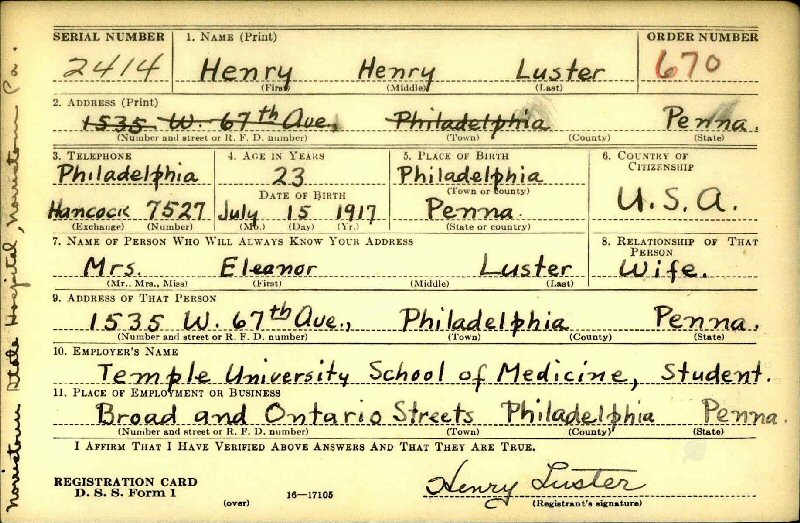 SERIAL NUMBER 1. NAME (Print) ORDER NUMBER
2414 Henry Henry Luster 670
(First) (Middle) (Last)
2. ADDRESS (Print)
1535 W. 67th Ave., Philadelphia Penna.
(Number and street or R. F. D. number) (Town) (County) (State)
3. TELEPHONE 4. AGE IN YEARS 5. PLACE OF BIRTH 6. COUNTRY OF CITIZENSHIP
Philadelphia 23 Philadelphia
DATE OF BIRTH (Town or county) U.S.A.
Hancock 7527 July 15 1917 Penna.
(Exchange) (Number) (Mo.) (Day) (Yr.) (State or country)
7. NAME OF PERSON WHO WILL ALWAYS KNOW YOUR ADDRESS 8. RELATIONSHIP OF THAT PERSON
Mrs. Eleanor Luster Wife.
(Mr., Mrs., Miss) (First) (Middle) (Last)
9. ADDRESS OF THAT PERSON
1535 W. 67th Ave., Philadelphia Penna.
(Number and street or R. F. D. number) (Town) (County) (State)
10. EMPLOYER'S NAME
Temple University School of Medicine, Student.
11. PLACE OF EMPLOYMENT OR BUSINESS
Broad and Ontario Streets Philadelphia Penna.
(Number and street or R. F. D. number) (Town) (County) (State)
I AFFIRM THAT I HAVE VERIFIED ABOVE ANSWERS AND THAT THEY ARE TRUE.
REGISTRATION CARD Henry Luster
D. S. S. Form 1 (over) 16—17105 (Registrant's signature)
Norristown State Hospital, Norristown Pa.